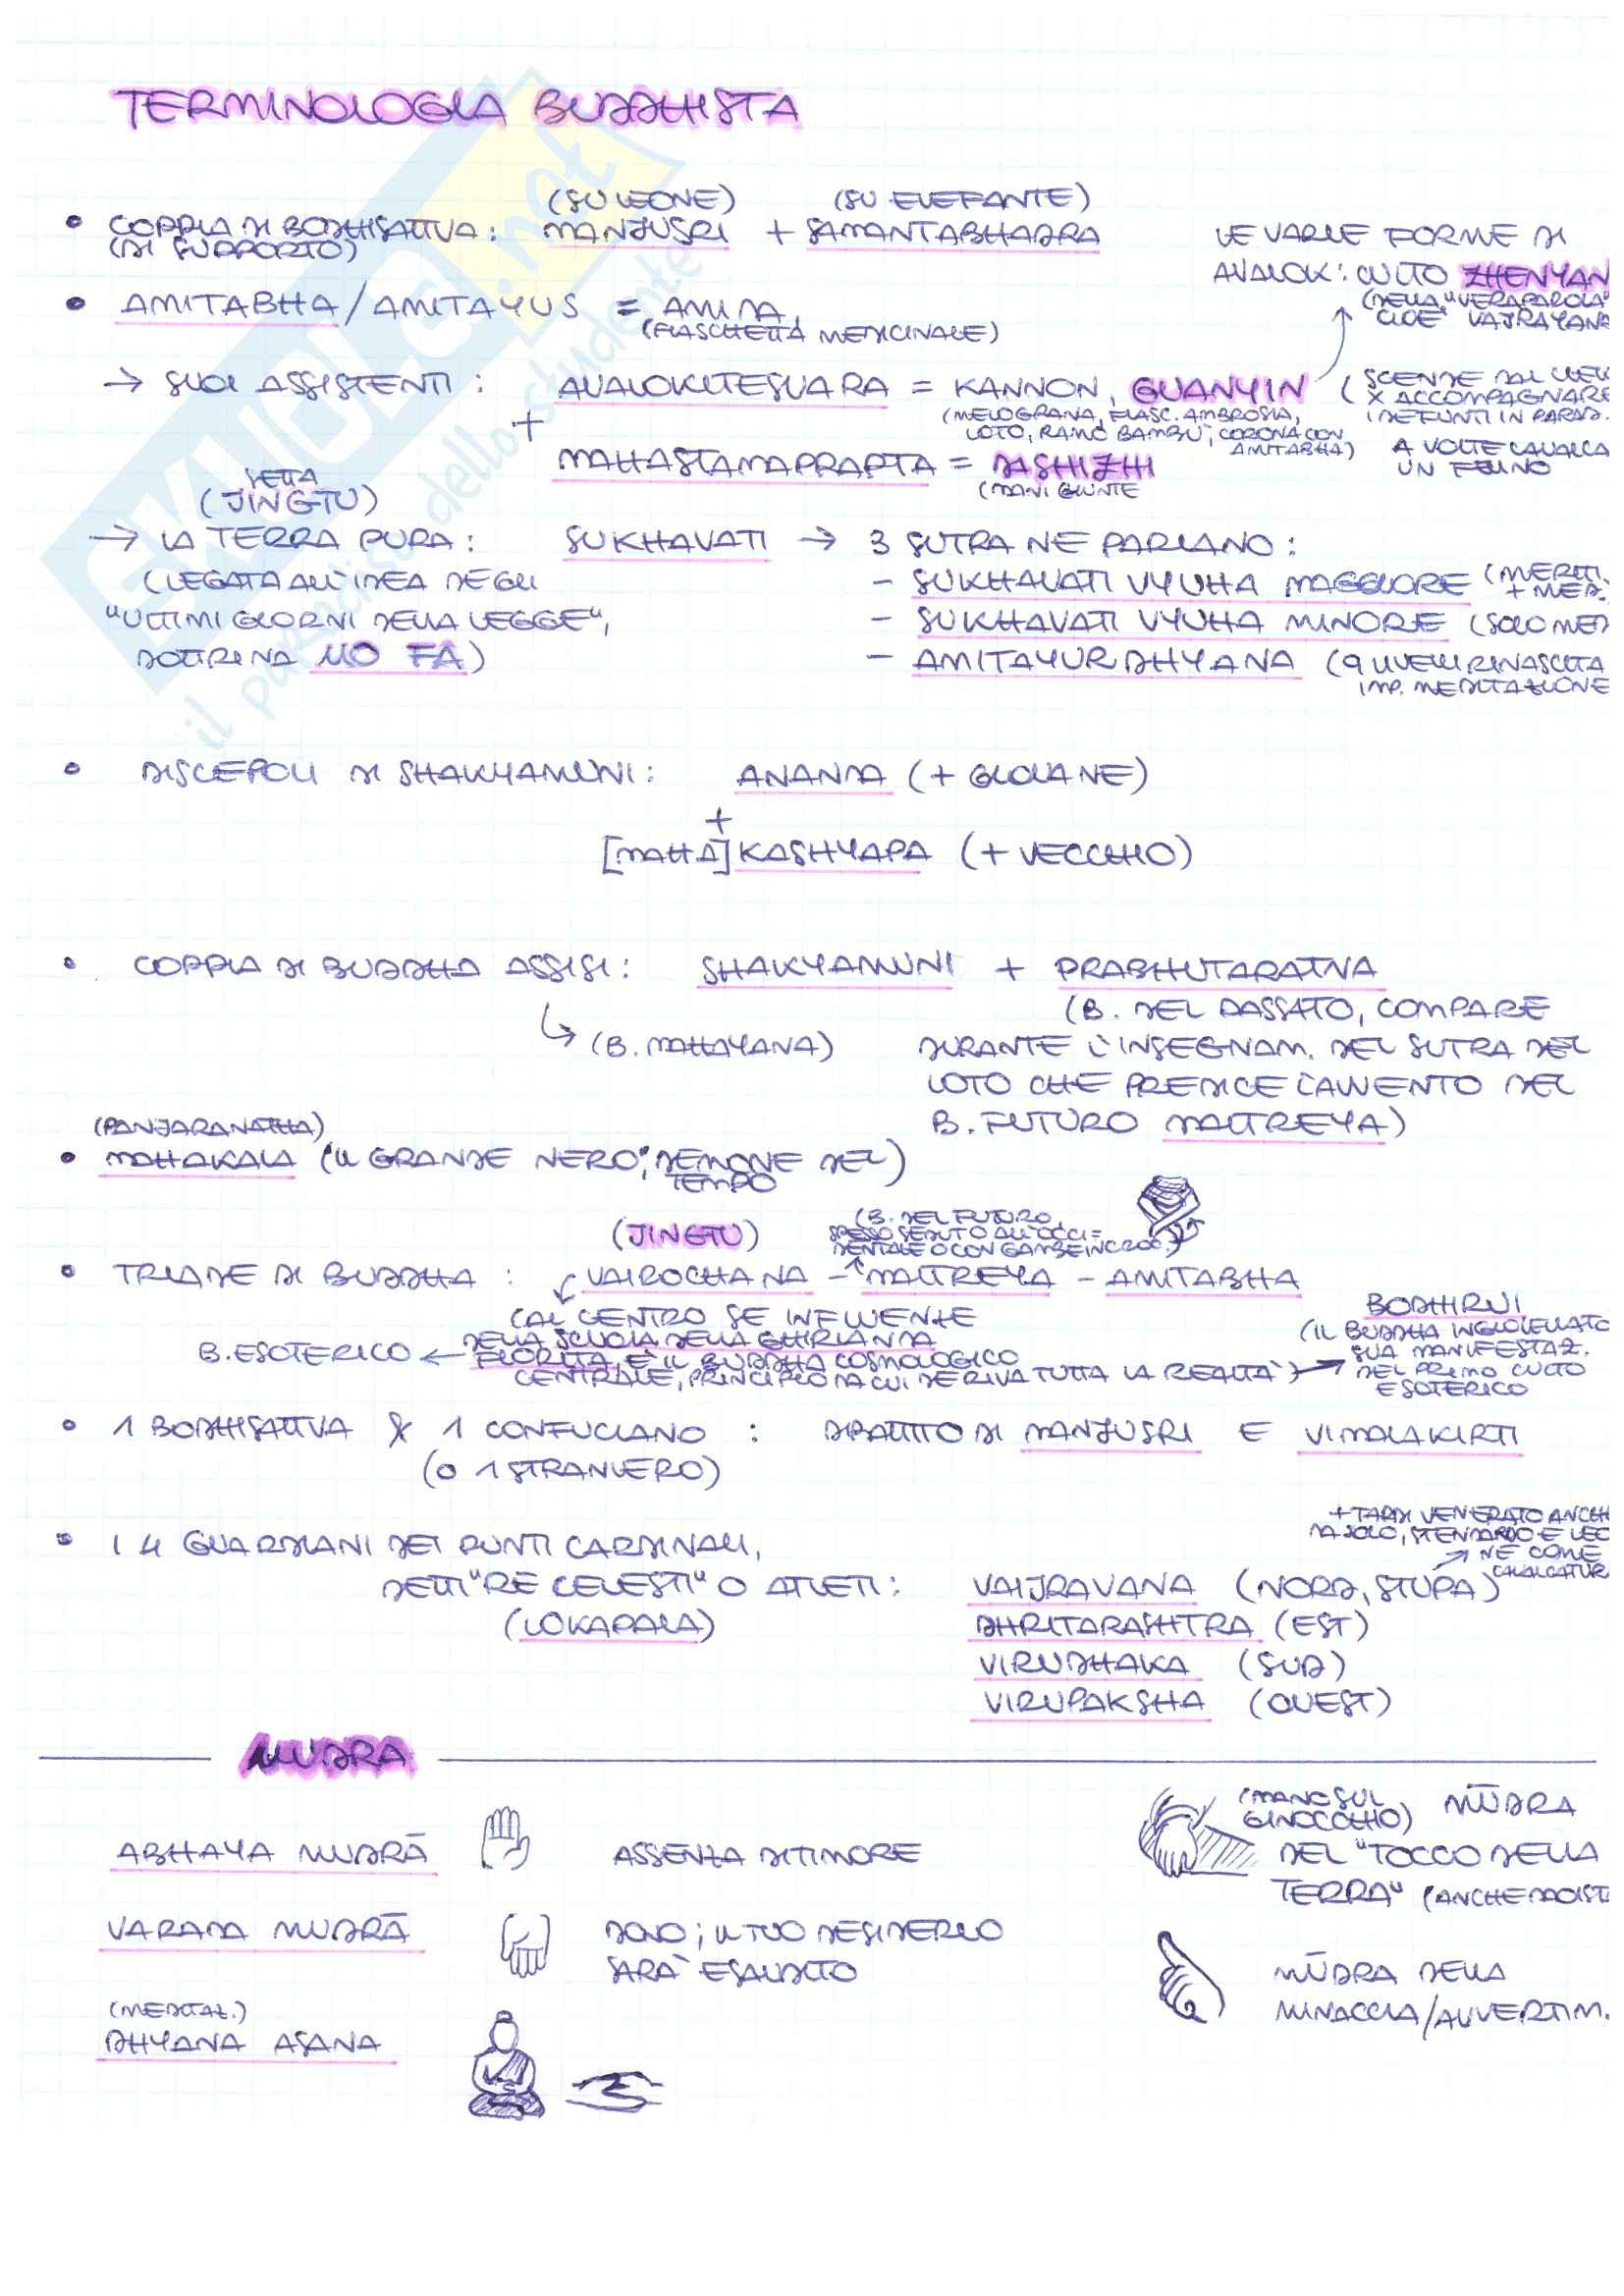 TERMINOLOGIA BUDDHISTA
(SU LEONE) (SU ELEFANTE)
• COPPIA DI BODHISATTVA: MANJUSRI + SAMANTABHADRA
(DI SUPPORTO)
LE VARIE FORME DI
AVALOK: CULTO ZHENYAN
(DELLA "VERA PAROLA"
CIOE' VAJRAYANA
• AMITABHA/AMITAYUS = AMIDA
(FIASCHETTA MEDICINALE)
→ SUOI ASSISTENTI: AVALOKITESVARA = KANNON, GUANYIN
(MELOGRANA, FLASC. AMBROSIA,
LOTO, RAMO BAMBU', CORONA CON
AMITABHA)
(SCENDE DAL CIELO
X ACCOMPAGNARE
I DEFUNTI IN PARAD.
A VOLTE CAVALCA
UN FELINO
+
MAHASTAMAPRAPTA = DASHIZHI
(MANI GIUNTE
SETTA
(JINGTU)
→ LA TERRA PURA: SUKHAVATI → 3 SUTRA NE PARLANO:
(LEGATA ALL'IDEA DEGLI
"ULTIMI GIORNI DELLA LEGGE",
DOTTRINA MO FA)
- SUKHAVATI VYUHA MAGGIORE (MERITI
+ MED.
- SUKHAVATI VYUHA MINORE (SOLO MED
- AMITAYURDHYANA (9 LIVELLI RINASCITA
IMP. MEDITAZIONE
• DISCEPOLI DI SHAKYAMUNI: ANANDA (+ GIOVANE)
+
[MAHA]KASHYAPA (+ VECCHIO)
• COPPIA DI BUDDHA ASSISI: SHAKYAMUNI + PRABHUTARATNA
↳ (B. MAHAYANA)
(B. DEL PASSATO, COMPARE
DURANTE L'INSEGNAM. DEL SUTRA DEL
LOTO CHE PREDICE L'AVVENTO DEL
B. FUTURO MAITREYA)
(PANJARANATHA)
• MAHAKALA ("IL GRANDE NERO", DEMONE DEL)
TEMPO
(JINGTU)
(B. DEL FUTURO,
SPESSO SEDUTO ALL'OCCI=
DENTALE O CON GAMBE INCROC.)
• TRIADE DI BUDDHA: VAIROCHANA - MAITREYA - AMITABHA
(AL CENTRO SE INFLUENTE
DELLA SCUOLA DELLA GHIRLANDA
B. ESOTERICO ← FIORITA, E' IL BUDDHA COSMOLOGICO
CENTRALE, PRINCIPIO DA CUI DERIVA TUTTA LA REALTA') →
BODHIRUI
(IL BUDDHA INGIOIELLATO
SUA MANIFESTAZ.
DEL PRIMO CULTO
ESOTERICO
• 1 BODHISATTVA & 1 CONFUCIANO: DIBATTITO DI MANJUSRI E VIMALAKIRTI
(O 1 STRANIERO)
• I 4 GUARDIANI DEI PUNTI CARDINALI,
DETTI "RE CELESTI" O ATLETI:
(LOKAPALA)
+ TARDI VENERATO ANCHE
DA SOLO, STENDARDO E LEO
NE COME
CAVALCATUR
VAIJRAVANA (NORD, STUPA)
DHRITARASHTRA (EST)
VIRUDHAKA (SUD)
VIRUPAKSHA (OVEST)
MUDRA
ABHAYA MUDRĀ ASSENZA DI TIMORE
VARADA MUDRĀ DONO; IL TUO DESIDERIO
SARA' ESAUDITO
(MEDITAZ.)
DHYANA ASANA
(MANO SUL
GINOCCHIO) MŪDRA
DEL "TOCCO DELLA
TERRA" (ANCHE DAOIST
MŪDRA DELLA
MINACCIA/AVVERTIM.
SKUOLA.net
il paradiso dello studente